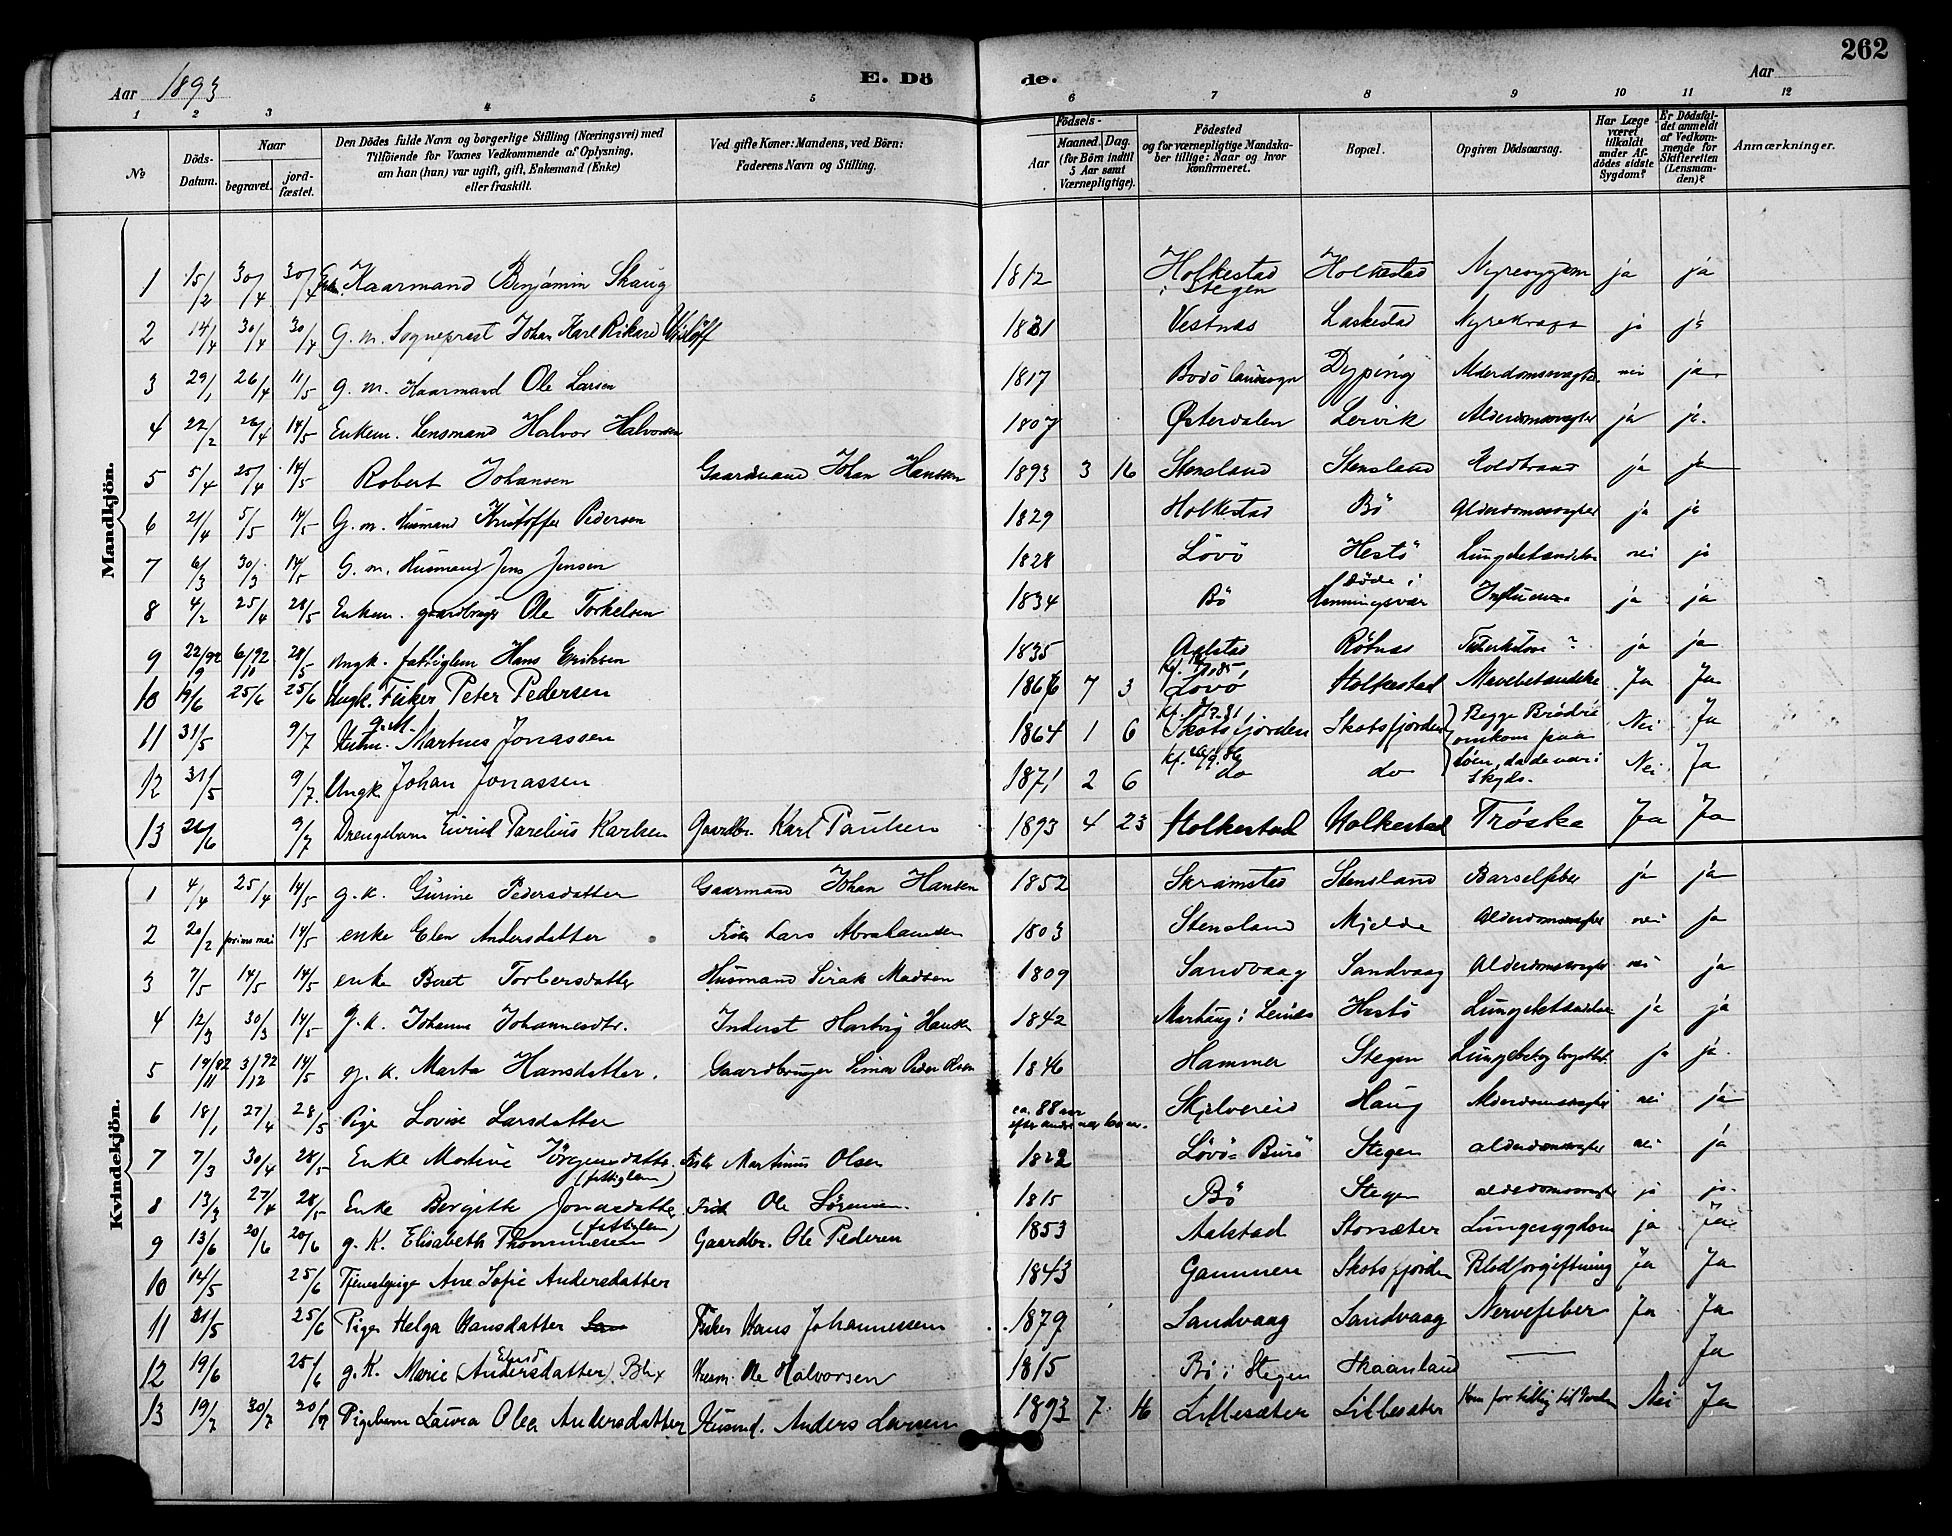 262
Aar 1893 E. Dö de. Aar
1 2 3 4 5 6 7 8 9 10 11 12
No
Döds-Datum.
Naar
begravet.
jord-fæstet.
Den Dödes fulde Navn og borgerlige Stilling (Næringsvei) med
Tilföiende for Voxnes Vedkommende af Oplysning,
om han (hun) var ugift, gift, Enkemand (Enke)
eller fraskilt.
Ved gifte Koner: Mandens, ved Börn:
Faderens Navn og Stilling.
Födsels-
Aar
Maaned. Dag.
(for Börn indtil
5 Aar samt
Værnepligtige).
Födested
og for værnepligtige Mandska-
ber tillige: Naar og hvor
konfirmeret.
Bopæl.
Opgiven Dödsaarsag.
Har Læge
været
tilkaldt
under Af-
dödes sidste
Sygdom?
Er Dödsfal-
det anmeldt
af Vedkom-
mende for
Skifteretten
(Lensman-
den)?
Anmærkninger.
Mandkjön.
1 15/2 30/4 30/4 Kaarmand Benjamin Skaug 1812 Holkestad i Stegen Holkestad Nyresygdom ja ja
2 14/4 30/4 30/4 G. m. Sogneprest Johan Karl Rikard 1821 Vestnæs Laskestad ja ja
3 29/1 26/4 11/5 g. m. Kaarmand Ole Larsen 1817 Bodö landsogn Dyping Alderdomssvaghed nei ja
4 22/2 26/4 14/5 Enkem. Lensmand Halvor Halvorsen 1807 Østerdalen Lervik Alderdomssvaghed ja ja
5 5/4 25/4 14/5 Robert Johansen Gaardmand Johan Hansen 1893 3 16 Stensland Stensland Koldbrand ja ja
6 21/4 5/5 14/5 G. m. Husmand Kristoffer Pedersen 1829 Holkestad Bö Alderdomssvaghed ja ja
7 6/3 30/3 14/5 G. m. Husmand Jens Jensen 1828 Lövö Hestö Lungebetændelse nei ja
8 4/2 25/4 28/5 Enkem. gaardbruger Ole Torkelsen 1834 Bö döde i Henningsvær Influenza ja ja
9 22/92 9 6/92 10 28/5 Ungk. fattiglem Hans Eriksen 1835 Aalstad Rötnes ja ja
10 19/6 25/6 25/6 Ungk. Fisker Peter Pedersen 1866 7 3 Lövö Holkestad Mavebetændelse Ja Ja
11 31/5 9/7 g. M. Martnus Jonassen 1864 1 6 Skotsfjorden Skotsfjorden Begge Brödre omkom paa Nei Ja
12 31/5 9/7. Ungk Johan Jonassen 1871 2 6 do do Söen, da de var i Skyds. Nei Ja
13 26/6 9/7 Drengebarn Eivind Parelius Karlsen Gaardbr. Karl Paulsen 1893 4 23 Holkestad Holkestad Trøske Ja Ja
Kvindekjön.
1 4/4 25/4 14/5 g. k. Gurine Pedersdatter Gaarmand Johan Hansen 1852 Skramstad Stensland Barselfeber ja ja
2 20/2 primo mai 14/5 enke Elen Andersdatter Fisker Lars Abrahamsen 1803 Stensland Mjelde Alderdomssvaghed nei ja
3 7/5 14/5 14/5 enke Beret Torbersdatter Husmand Sirak Madsen 1809 Sandvaag Sandvaag Alderdomssvaghed nei ja
4 12/3 30/3 14/5 g. k. Johanne Johannesdtr. Inderst Hartvig Hansen 1842 Leines Hestö Lungebetændelse ja ja
5 19/92 11 3/92 12 14/5 g. k. Marta Hansdatter. Gaardbruger Simon Peder Olsen 1846 Hammer Stegen ja ja.
6 18/1 27/4 28/5 Pige Lovise Larsdatter ca. 88 aar Skjelvereid Haug Alderdomssvaghed nei ja
7 7/3 30/4 28/5 Enke Martine Jörgensdatter (fattiglem) Fisker Martinus Olsen 1822 Lövö Burö Stegen alderdomssvaghed nei ja
8 13/3 27/4 28/5 Enke Bergitte Jonasdatter (fattiglem) Fisk Ole Sörensen. 1815 Bö Stegen alderdomssvaghed ja ja.
9 13/6 20/6 20/6 g. K. Elisabeth Thommesen Gaardbr. Ole Pedersen 1853 Aalstad Storsæter Lungesygdom ja Ja
10 14/5 25/6 Tjenestepige Ane Sofie Andersdatter 1843 Gammen Skotsfjorden Blodforgiftning Ja Ja
11 21/5 25/6 Pigen Helga Hansdatter Fisker Hans Johannessen 1879 Sandvaag Sandvaag Nervefeber Ja Ja
12 19/6 25/6 g. K. Marie (Andersdatter) Blix Husm. Ole Halvorsen 1815 Bö i Stegen Skaanland — Ja
13 19/7 30/7 20/9 Pigebarn Laura Olea Andersdatter Husmd. Anders Larsen 1893 7 16 Lillesæter Lillesæter Kom for tidlig til Verden Nei Ja